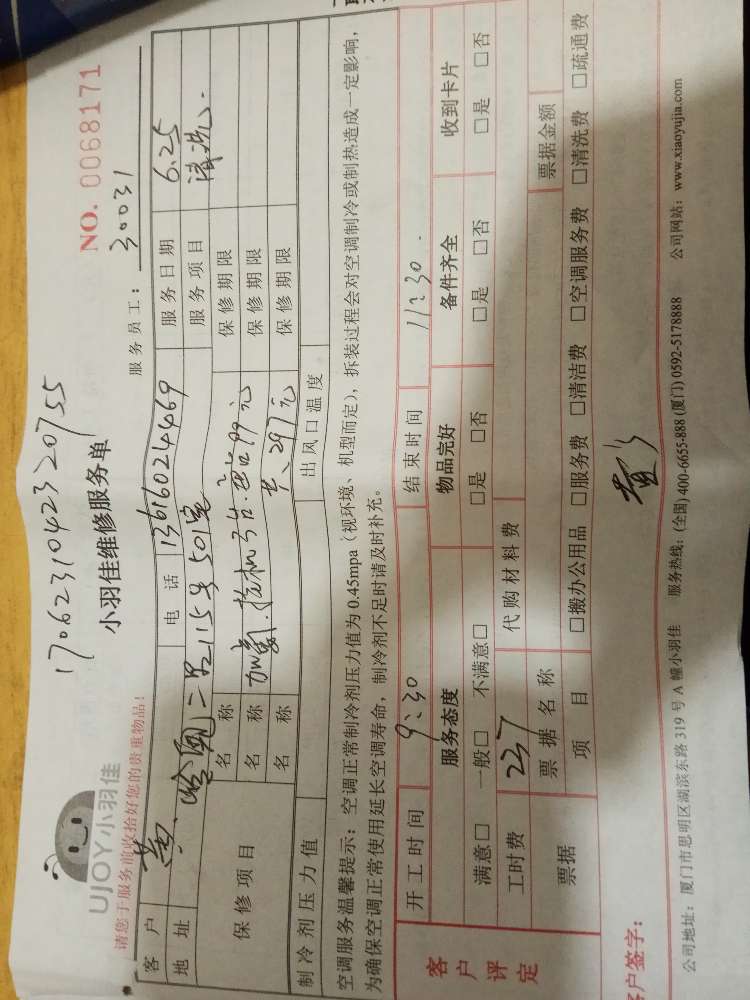 1706231042320755
NO. 0068171
UJOY小羽佳
小羽佳维修服务单
服务员工：30031
请您于服务前收拾好您的贵重物品！
客户 黄 电话 13616024469 服务日期 6.25
地址 二里115号501室 服务项目 清洗
保修项目 名称 保修期限
名称 加氟 保修期限
名称 共、297元 保修期限
制冷剂压力值 出风口温度
空调服务温馨提示：空调正常制冷剂压力值为0.45mpa（视环境、机型而定），拆装过程会对空调制冷或制热造成一定影响，
为确保空调正常使用延长空调寿命，制冷剂不足时请及时补充。
客户评定
开工时间 9:30 结束时间 11:30
服务态度 物品完好 备件齐全 收到卡片
满意□ 一般□ 不满意□ □是 □否 □是 □否 □是 □否
工时费 237 代购材料费
票据 票据名称 票据金额
项目 □搬办公用品 □服务费 □清洁费 □空调服务费 □清洗费 □疏通费
客户签字：
公司地址：厦门市思明区湖滨东路319号A幢小羽佳 服务热线：(全国) 400-6655-888 (厦门) 0592-5178888 公司网站：www.xiaoyujia.com